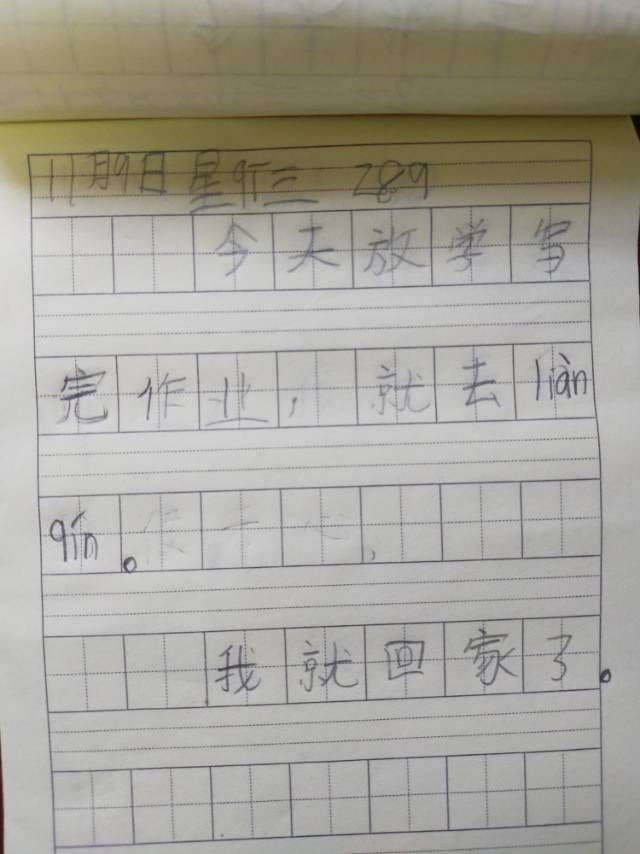 11月9日 星期三 289
今天放学写
完作业，就去liàn
qín。
我就回家了。